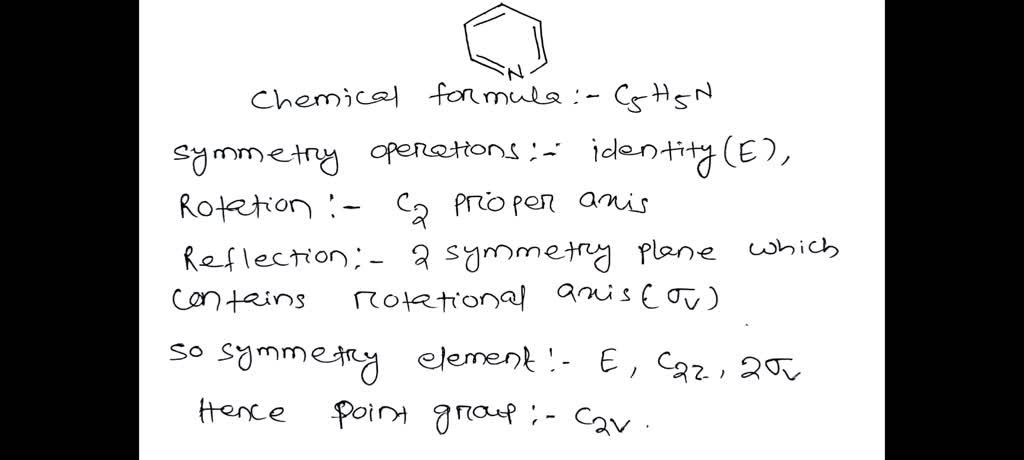 N
Chemical formula:- C5H5N
symmetry operations:- identity(E),
Rotation:- C2 proper axis
Reflection:- 2 symmetry plane which
contains rotational axis(σv)
so symmetry element:- E, C2z, 2σv
Hence point group:- C2v.